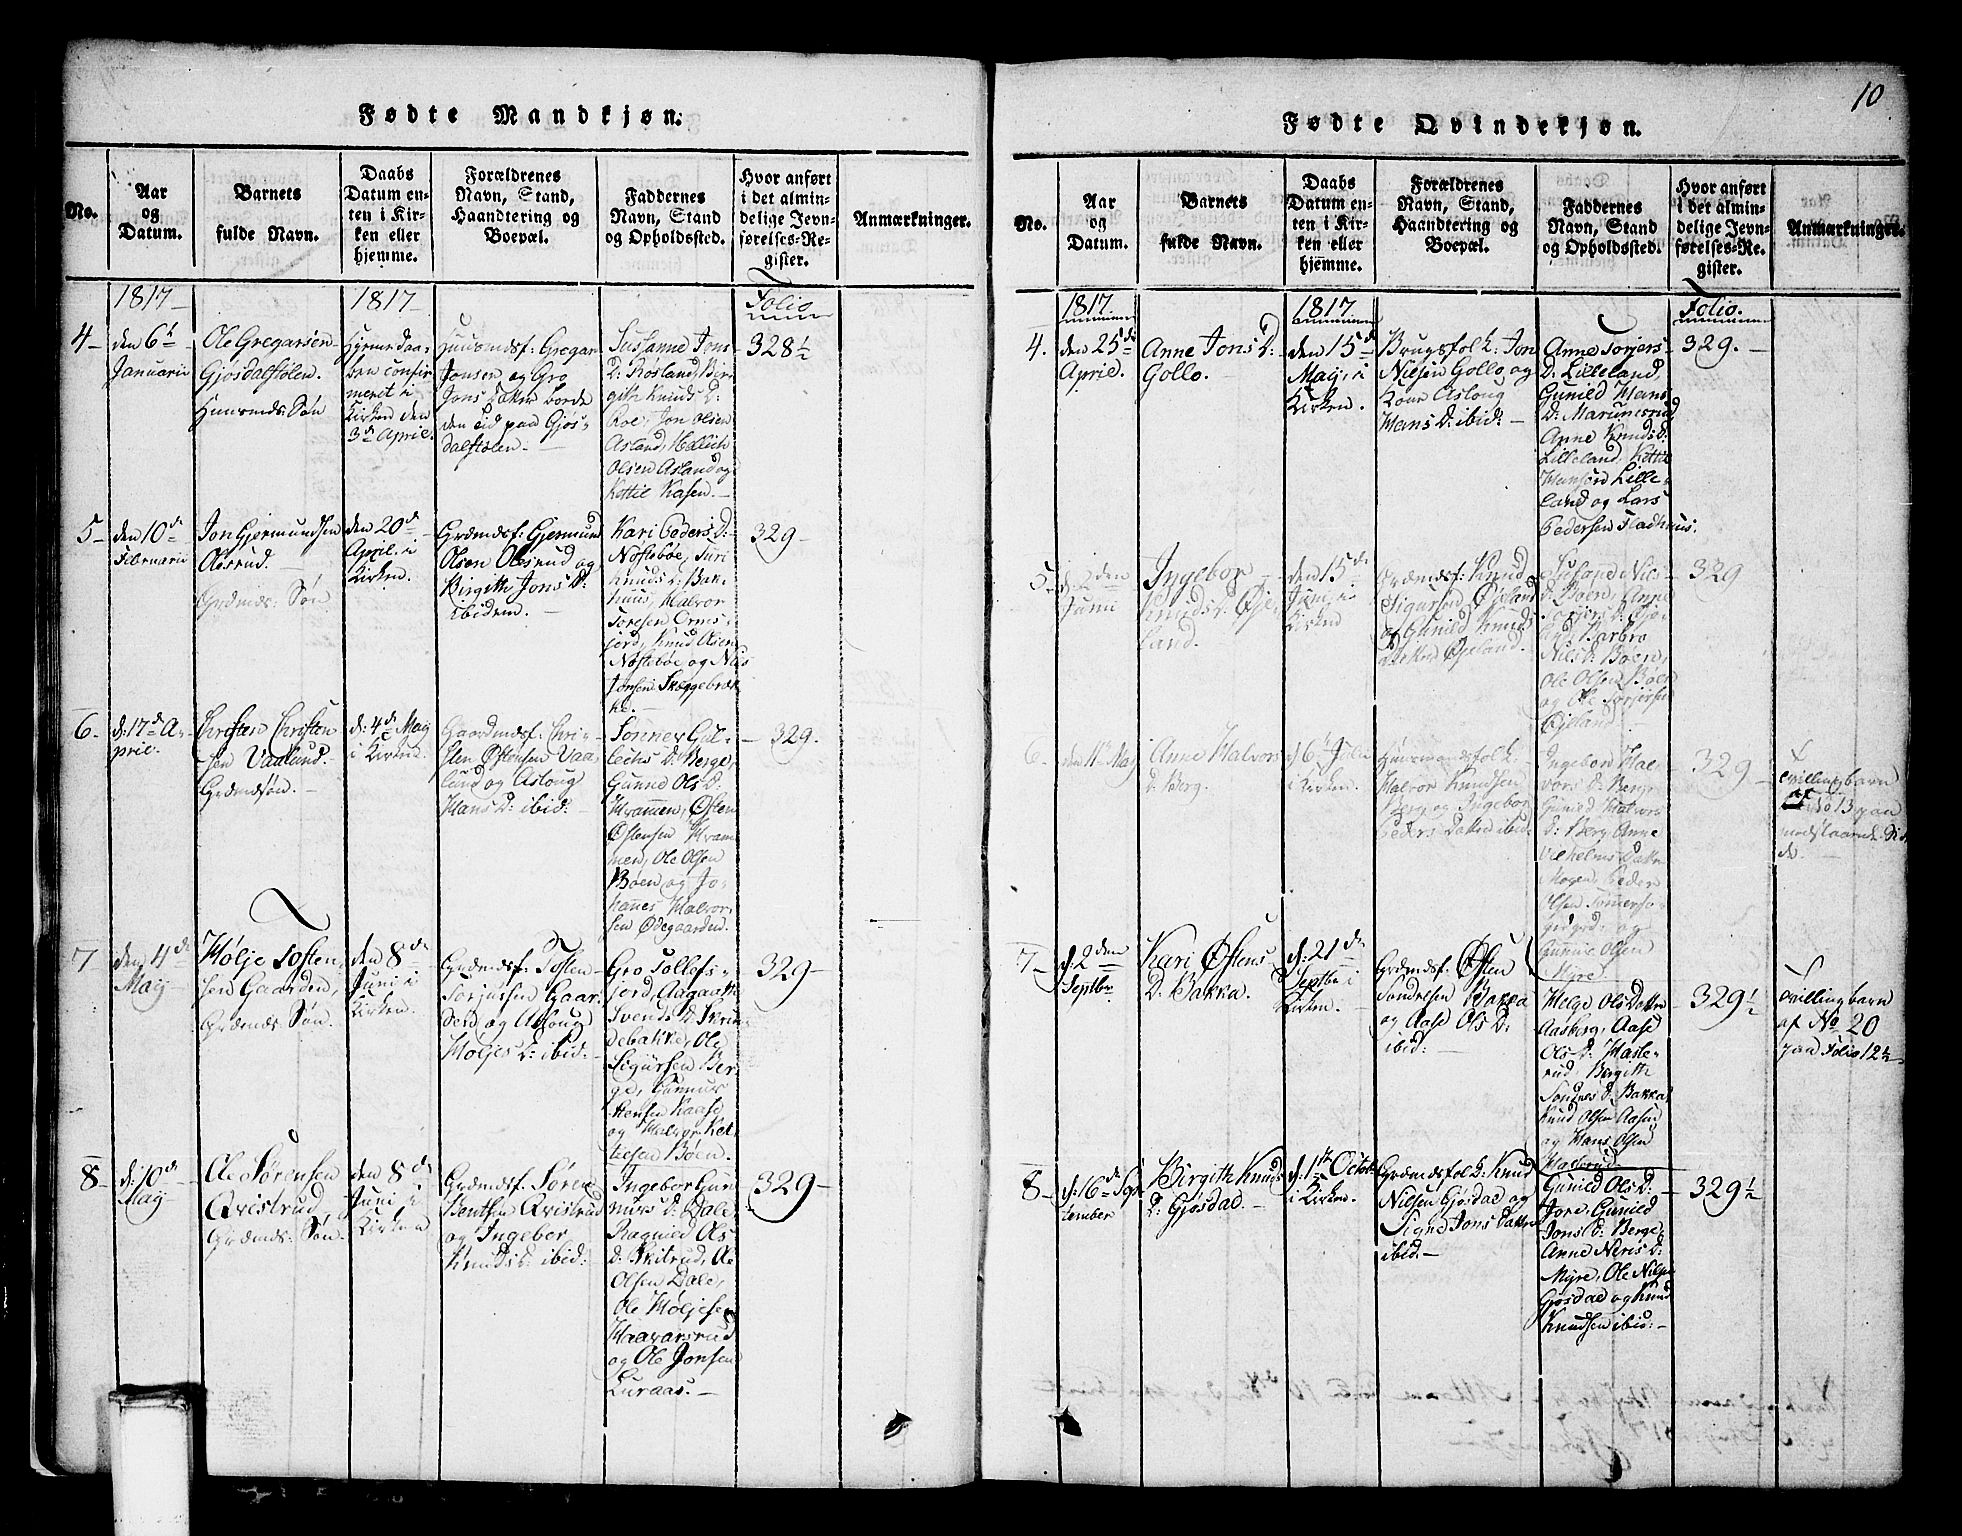 Fødte Mandkjøn.
No.
Aar
og
Datum.
Barnets
fulde Navn.
Daabs
Datum en-
ten i Kir-
ken eller
hjemme.
Forældrenes
Navn, Stand,
Haandtering og
Boepæl.
Faddernes
Navn, Stand
og Opholdssted.
Hvor anført
i det almin-
delige Jevn-
førelses-Re-
gister.
Anmærkninger.
1817
1817
Folio
4
den 6t
Januarii
Ole Gregarsen
Gjosdalstølen.
Huusmds: Søn
Hjemedaa-
ben confir-
meret i
Kirken den
3de April.
Huusmdsf: Gregar
Jonsen og Gro
Jons Datter
Gjøs-
dalstolen.
Susanne Jons
D: Rosland, Ber-
gith Knuds D:
Roe, Jon Olsen
Asland,
Olsen Asland og
Kettil Kasen.
328½
5
den 10de
Februarii
Jon Gjermundsen
Olsrud.
Grdmds: Søn
den 20de
April i
Kirken.
Grdmdsf: Gjermund
Olsen Olsrud og
Birgith Jons D:
ibidem.
Kari Peders D:
Nøstebøe, Turi
Knuds D: Bak-
huus, Halvor
Toresen Orms-
jord, Knud Olsen
Nøstebøe og Nils
Jonsen Skeggebræk-
ke.
329
6.
d: 17de A-
pril.
Christen Christen-
sen Vaalund.
Grdmdsøn.
d: 4de Maij
i Kirken.
Gaardmdsf: Chri-
sten Østensen Vaa-
lund og Asloug
Hans D: ibid:
Tonnes Gul-
lechs D: Berge,
Gunne Ols D:
Hrammen, Østen
Østensen Hram-
men, Ole Olsen
Bøen og Jo-
hannes Halvor-
sen Ødegaarden.
329.
7
den 4de
Maij
Høljе Tosten-
sen Gaarden,
Grdmds Søn.
den 8de
Juni i
Kirken.
Grdmdsf: Tosten
Torjussen Gaar-
den og Asloug
Høljes D: ibid:
Gro Tollefs-
jord, Aagaathe
Svends D: Skrin-
debakke, Ole
Sigursen Ber-
ge, Gunnur
Kaase
og Halvor Ket-
tilsen Bøen.
329
8
d: 10de
Maij
Ole Sørensen
Qvistrud
Grdmds: Søn.
den 8de
Juni i
Kirken
Grdmdsf: Søren
Bentsen Qvistrud
og Ingebor
Knuds D: ibid:
Ingebor Gun-
nurs D: Dale,
Ragnild Ols
D: Skitrud, Ole
Olsen Dale,
Ole Høljesen
Haavarsrud
og Ole Jonsen
Luraas.
329
10
Fødte Qvindekjøn.
No.
Aar
og
Datum.
Barnets
fulde Navn.
Daabs
Datum en-
ten i Kir-
ken eller
hjemme.
Forældrenes
Navn, Stand,
Haandtering og
Boepæl.
Faddernes
Navn, Stand
og Opholdssted.
Hvor anført
i det almin-
delige Jevn-
førelses-Re-
gister.
Anmærkninger.
1817
1817
Folio.
4.
den 25de
April.
Anne Jons D:
Gollo.
den 15de
Maij, i
Kirken.
Brugsfolk: Jon
Nilsen Gollo og
Kone Asloug
Hans D: ibid:
Anne Torjers-
D: Lilleland,
Gunild Hans
D:
Anne Knuds D:
Lilleland, Kettil
Hansen Lille-
land og Lars
Pedersen Fladhuus.
329.
5.
d. 2den
Juni
Ingebor
Knuds D. Øje-
land.
den 15de
Juni, i
Kirken
Grdmdsf: Knud
Sigursen Øjeland
og Gunild Knuds
Datter Øjeland.
Susanne Nils
D: Bøen, Anne
Torjers D: Øje-
land, Barbro
Nils D: Bøen,
Ole Olsen Bøen
og Ole Torjersen
Øjeland.
329
6.
den 11te Maij
Anne Halvors
D: Berg.
d 6t Julii
i Kirken
Huusmandsfolk
Halvor Knudsen
Berg og Ingebor
Peders Datter ibid:
Ingebor Hal-
vors D: Berg,
Gunild Halvors
D: Berg, Anne
Vilhelms Datter
Mogen, Peder
Olsen
og
Gunnul Olsen
Myre.
329
Tvillingbarn
af No 13 paa
modstaaende Si-
de.
7
d: 2den
Septbr.
Kari Østens
D: Bakka.
d: 21de
Septbr. i
Kirken.
Grdmdsf: Østen
Sondresen Bakka
og Aase Ols D:
ibid:
Helge Ols Datter
Aasberg, Aase
Ols D: Hasle-
rud, Bergith
Sondres D: Bakka,
Knud Olsen Aasen,
og Hans Olsen
Haslerud.
329½
Tvillingbarn
af No 20
paa Folio 12½
8
d: 16de Sep-
tember
Birgith Knuds
D: Gjøsdad.
d: 1te Octob:
i Kirken.
Grdmdsfolk: Knud
Nilsen Gjøsdad og
Signe Jons Datter
ibid.
Gunild Ols D:
Jore, Gunild
Jons D: Berge,
Anne Neris D:
Myre, Ole Nilsen
Gjøsdad og Knud
Knudsen ibid:
329½